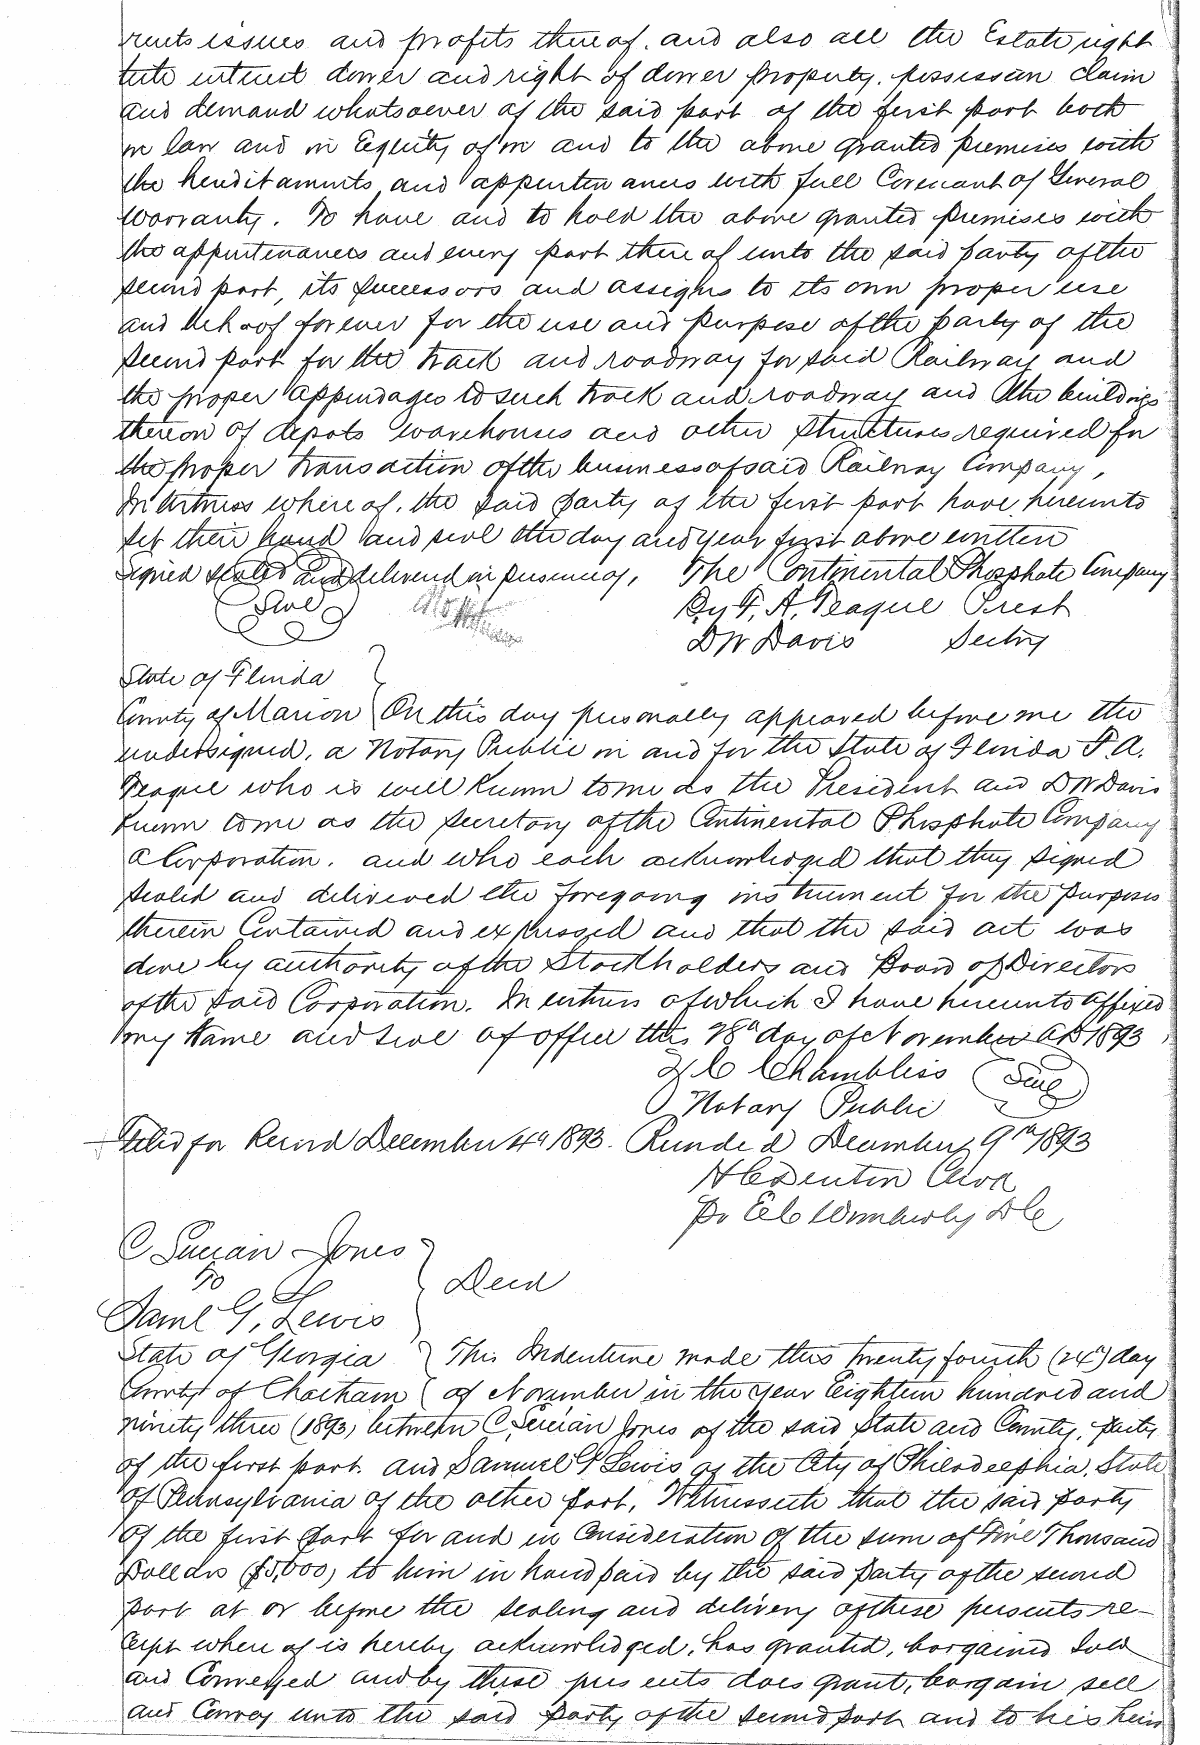 rents issues and profits thereof. and also all the Estate right
title interest dower and right of dower property, possession claim
and demand whatsoever of the said part of the first part both
in law and in Equity of in and to the above granted premises with
the hereditaments and appurtenances with full Covenant of General
Warranty. To have and to hold the above granted premises with
the appurtenances and every part thereof unto the said party of the
second part, its successors and assigns to its own proper use
and behoof forever for the use and purpose of the party of the
second part for the track and roadway for said Railway and
the proper appendages to such track and roadway and the buildings
thereon of depots warehouses and other structures required for
the proper transaction of the business of said Railway Company,
In witness whereof, the said party of the first part have hereunto
set their hand and seal the day and year first above written
Signed sealed and delivered in presence of, The Continental Phosphate Company
Seal By F. A. Teague Prest
D W Davis Secty
State of Florida
County of Marion On this day personally appeared before me the
undersigned, a Notary Public in and for the State of Florida F. A.
Teague who is well known to me as the President and D W Davis
known to me as the secretary of the Continental Phosphate Company
a Corporation. and who each acknowledged that they signed
sealed and delivered the foregoing instrument for the purposes
therein contained and expressed and that the said act was
done by authority of the Stockholders and Board of Directors
of the said Corporation. In witness of which I have hereunto affixed
my Name and seal of office this 28th day of November AD 1893
Z C Chambliss Seal
Notary Public
Filed for Record December 4th 1893. Recorded December 9th 1893
H C Denton Clerk
Pr E C Wimberly D C
C Lucian Jones
To
Saml G, Lewis
Deed
State of Georgia This Indenture made this twenty fourth (24th) day
County of Chatham of November in the year Eighteen hundred and
ninety three (1893) between C, Lucian Jones of the said State and County, party
of the first part. and Samuel G Lewis of the City of Philadelphia, State
of Pennsylvania of the other part, Witnesseth that the said party
of the first part for and in consideration of the sum of Five Thousand
Dollars ($5,000) to him in hand paid by the said party of the second
part at or before the sealing and delivery of these presents re-
ceipt where of is hereby acknowledged, has granted, bargained sold
and Conveyed and by these presents does grant, bargain sell
and Convey unto the said party of the second part and to his heirs